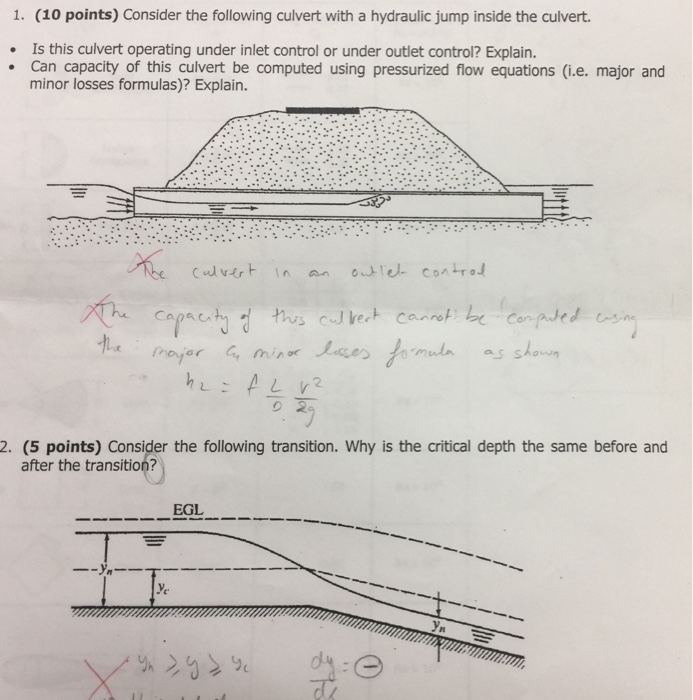 1. (10 points) Consider the following culvert with a hydraulic jump inside the culvert.
• Is this culvert operating under inlet control or under outlet control? Explain.
• Can capacity of this culvert be computed using pressurized flow equations (i.e. major and
minor losses formulas)? Explain.
The culvert in an outlet control
The capacity of this culvert cannot be computed using
the major & minor losses formula as shown
hL = f L/D V²/2g
2. (5 points) Consider the following transition. Why is the critical depth the same before and
after the transition?
EGL
yn
yc
yn
yn ≥ y ≥ yc dy/dx = ⊖